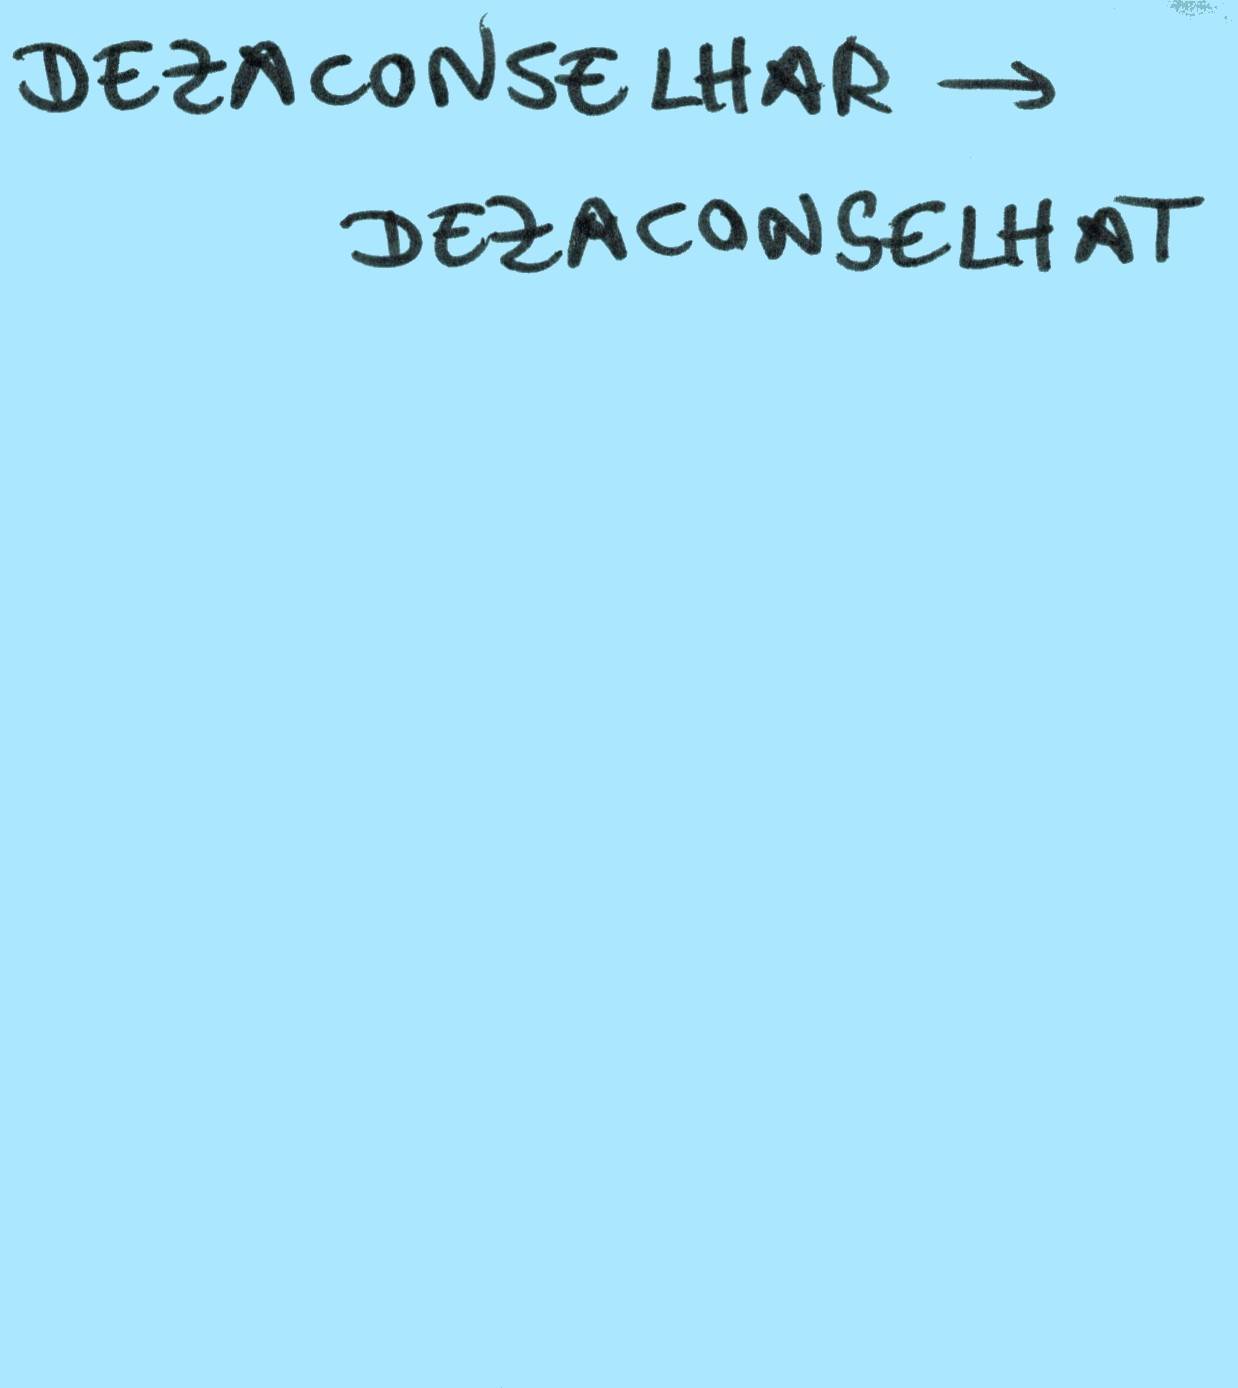 DEZACONSELHAR →
DEZACONSELHAT